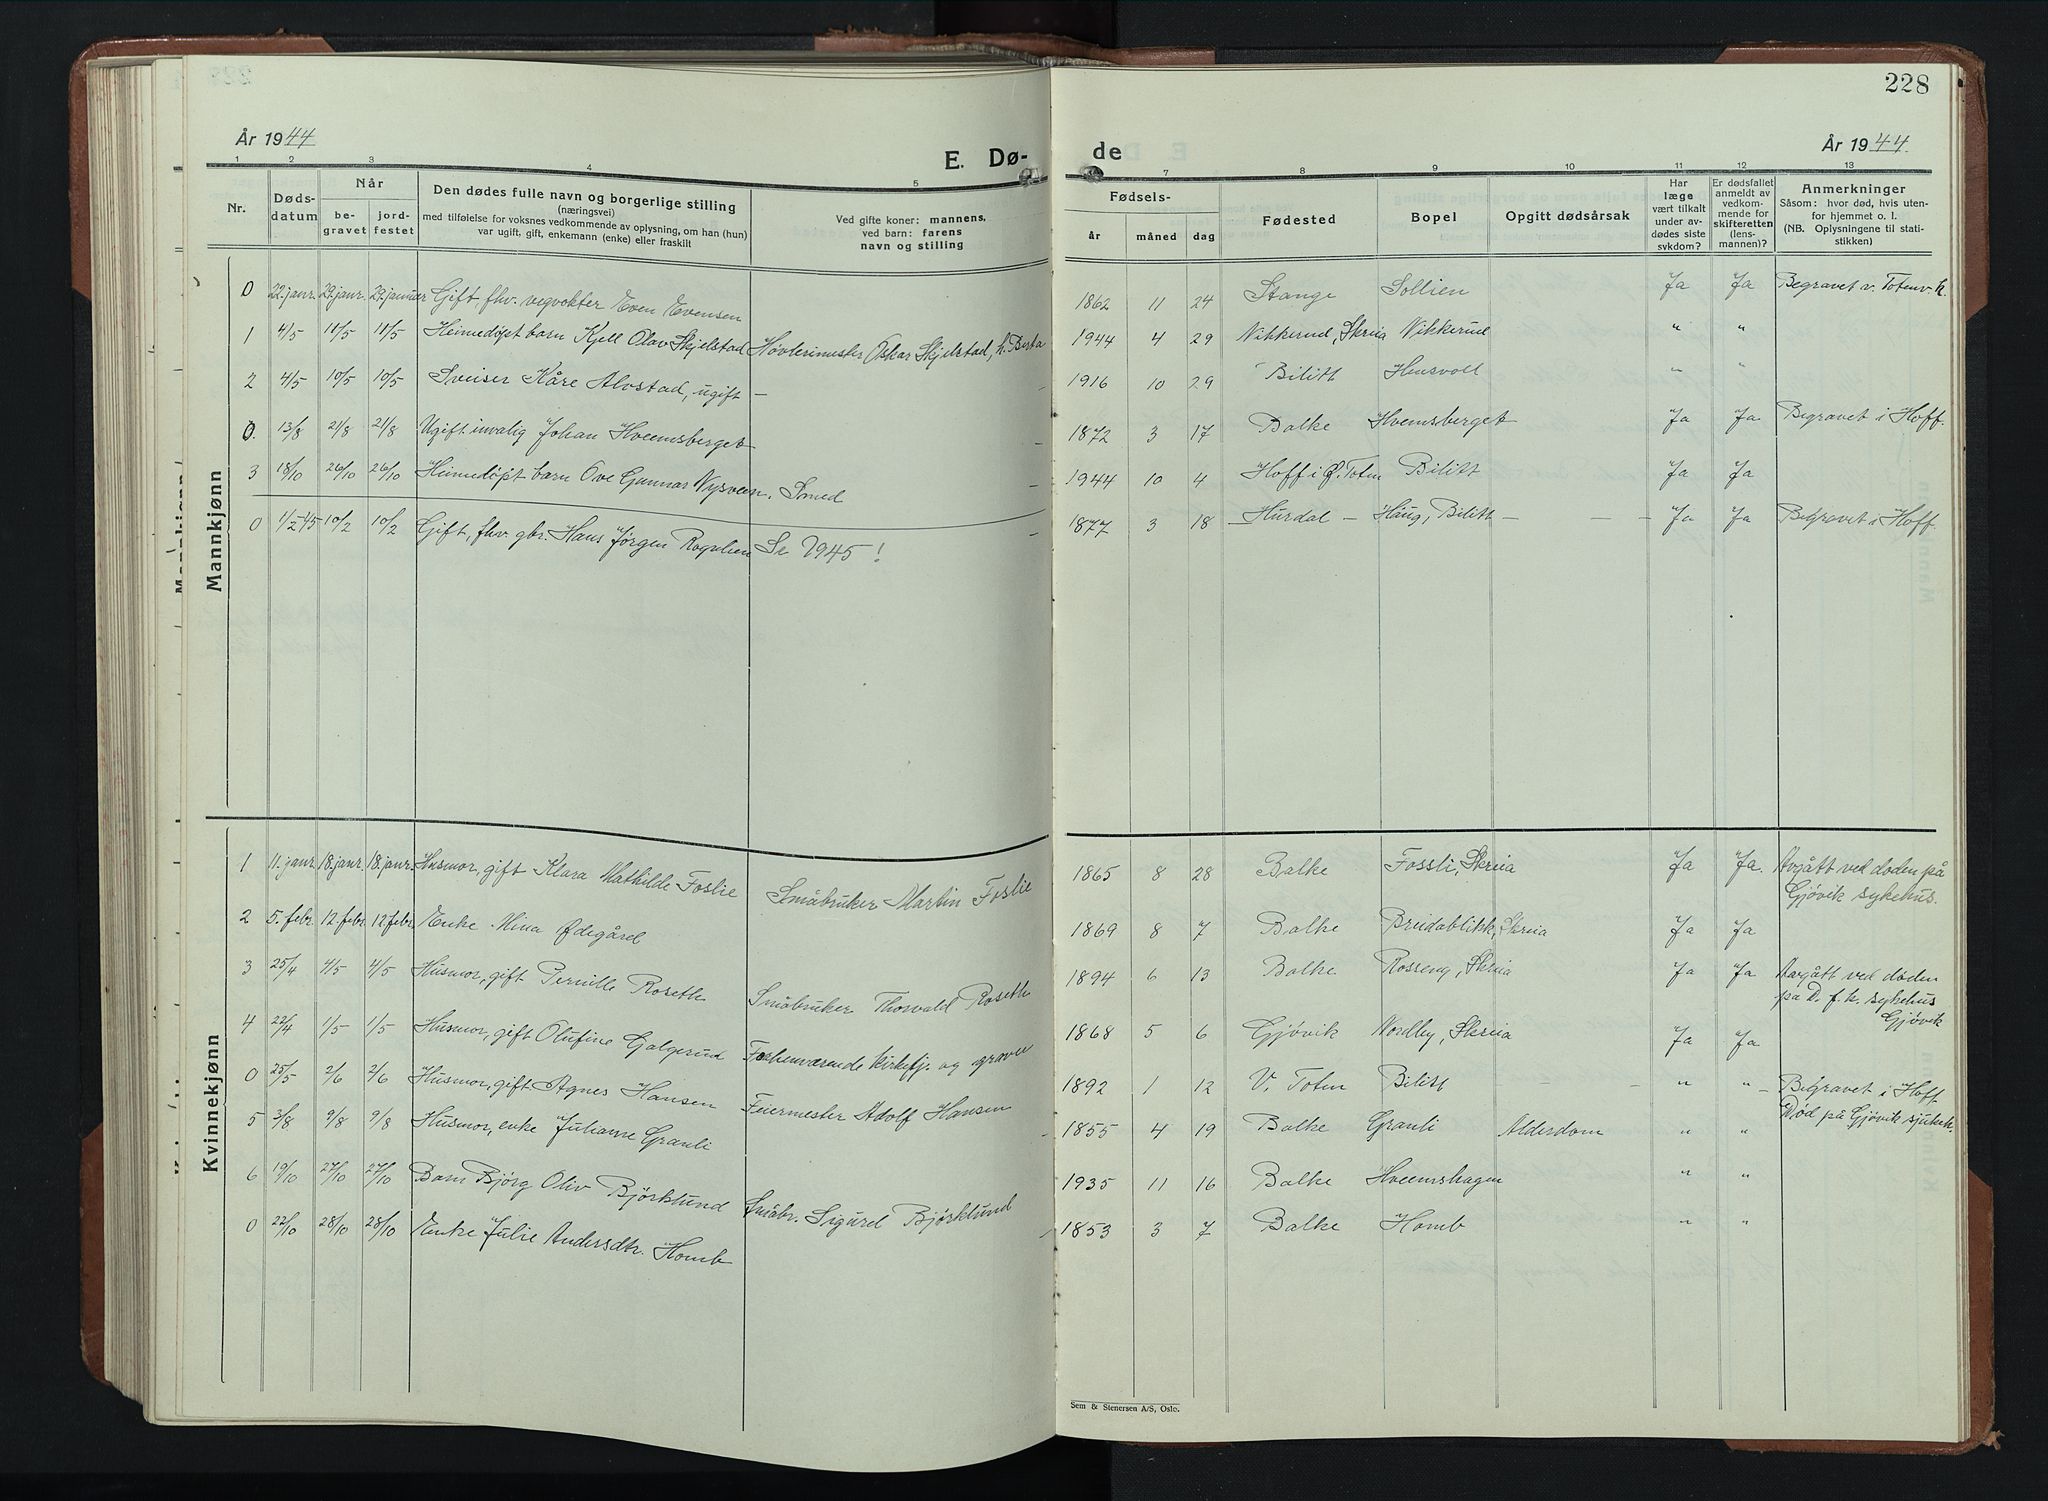 228
År 1944
E. Dø-
de
År 1944
1 2 3 4 5 7 8 9 10 11 12 13
Nr.
Døds-
datum
Når
be-
gravet
jord-
festet
Den dødes fulle navn og borgerlige stilling
(næringsvei)
med tilføielse for voksnes vedkommende av oplysning, om han (hun)
var ugift, gift, enkemann (enke) eller fraskilt
Ved gifte koner: mannens,
ved barn: farens
navn og stilling
Fødsels-
år måned dag
Fødested
Bopel
Opgitt dødsårsak
Har
læge
vært tilkalt
under av-
dødes siste
sykdom?
Er dødsfallet
anmeldt av
vedkom-
mende for
skifteretten
(lens-
mannen)?
Anmerkninger
Såsom: hvor død, hvis uten-
for hjemmet o. l.
(NB. Oplysningene til stati-
stikken)
Mannkjønn
0 22. janr. 29. janr. 29. januar Gift fhv. vegvokter Even Evensen 1862 11 24 Stange Sollien Ja Ja Begravet v. Totenv. k.
1 4/5 11/5 11/5 Heimedøpt barn Kjell Olav Skjelstad Høvlerimester Oskar Skjelstad, h. Berta 1944 4 29 Nikkerud, Skreia Nikkerud " "
2 4/5 10/5 10/5 Sveiser Kåre Alvstad, ugift — 1916 10 29 Bilitt Hensvoll " "
0. 13/8 21/8 21/8 Ugift invalig Johan Hveemsberget 1872 3 17 Balke Hvemsberget Ja Ja. Begravet i Hoff.
3 18/10 26/10 26/10 Heimedøpt barn Ove Gunnar Nysveen. Smed 1944 10 4 Hoff i Ø. Toten Bilitt Ja Ja
0 1/2-45 10/2 10/2 Gift, fhv. gbr. Hans Jørgen Rognlien Se 1945! 1877 3 18 — Hurdal — Haug, Bilitt — — — Ja Ja Begravet i Hoff.
Kvinnekjønn
1 11. janr. 18. janr. 18. janr. Husmor, gift Klara Mathilde Foslie Småbruker Martin Foslie 1865 8 28 Balke Fossli, Skreia Ja Ja. Avgått ved døden på
Gjøvik sykehus.
2 5. febr. 12. febr. 12 febr. Enke Mina Ødegård 1869 8 7 Balke Breidablikk, Skreia Ja Ja
3 25/4 4/5 4/5 Husmor, gift Pernille Roseth Småbruker Thorvald Roseth 1894 6 13 Balke Rosseng, Skreia Ja Ja Avgått ved døden
på D. f. k. sykehus
Gjøvik
4 22/4 1/5 1/5 Husmor, gift Olufine Galgerud Forhenværende kirketj. og graver 1868 5 6 Gjøvik Nordby, Skreia Ja Ja
0 25/5 2/6 2/6 Husmor, gift Agnes Hansen Feiermester Adolf Hansen 1892 1 12 V. Toten Bilitt — — " " — Begravet i Hoff
Død på Gjøvik sjukeh.
5 3/8 9/8 9/8 Husmor, enke Julianne Granli 1855 4 19 Balke Granli Alderdom " "
6 19/10 27/10 27/10 Barn Bjørg Oliv Björklund Småbr. Sigurd Björklund 1935 11 16 Balke Hveemshagen " "
0 22/10 28/10 28/10 Enke Julie Andersdtr. Homb 1853 3 7 Balke Homb " "
Sem & Stenersen A/S, Oslo.